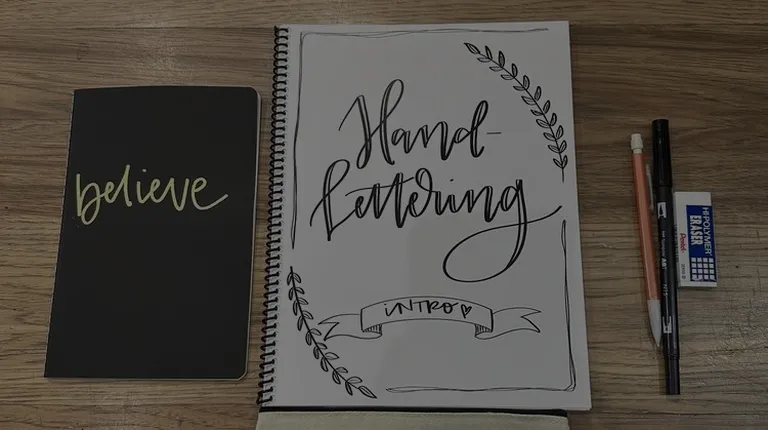 believe
Hand-
Lettering
iNTRO
HI-POLYMER
ERASER
Pentel